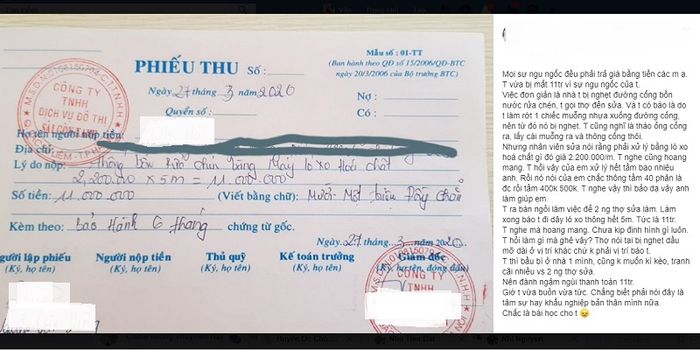 PHIẾU THU
Số:
Mẫu số : 01-TT
(Ban hành theo QĐ số 15/2006/QĐ-BTC
ngày 20/3/2006 của Bộ trưởng BTC)
Ngày 27 tháng 3 năm 2020
Quyển số:
Nợ :
Có :
CÔNG TY
TNHH
DỊCH VỤ ĐÔ THỊ
Họ tên người nộp tiền:
Địa chỉ:
Lý do nộp: Thông bồn Rửa chén bằng Máy lo xo Hoá chất
2,200.000 x 5m = 11.000.000
Số tiền: 11.000.000 (Viết bằng chữ): Mười Một triệu Đồng Chẵn
Kèm theo: bảo Hành 6 tháng chứng từ gốc.
Ngày 27 tháng 3 năm 2020.
gười lập phiếu
(Ký, họ tên)
Người nộp tiền
(Ký, họ tên)
Thủ quỹ
(Ký, họ tên)
Kế toán trưởng
(Ký, họ tên)
Giám đốc
(Ký, họ tên, đóng dấu)
CÔNG TY
TNHH
Mọi sự ngu ngốc đều phải trả giá bằng tiền các m ạ.
T vừa bị mất 11tr vì sự ngu ngốc của t.
Việc đơn giản là nhà t bị nghẹt đường cống bồn
nước rửa chén, t gọi thợ đến sửa. Và t có bảo là do
t làm rót 1 chiếc muỗng nhựa xuống đường cống,
nên từ đó nó bị nghẹt. T cũng nghĩ là tháo ống cống
ra, lấy cái muỗng ra và thông cống thôi.
Nhưng nhân viên sửa nói rằng phải xử lý bằng lò xo
hoá chất gì đó giá 2.200.000/m. T nghe cũng hoang
mang. T hỏi vậy của em xử lý hết tầm bao nhiêu
anh. Rồi nó nói của em chắc thông tầm 40 phân là
đc rồi tầm 400k 500k. T nghe vậy thì bảo dạ vậy anh
làm giúp em.
T ra bàn ngồi làm việc để 2 ng thợ sửa làm. Làm
xong báo t đi dây lò xo thông hết 5m. Tức là 11tr.
T nghe mà hoang mang. Chưa kịp định hình gì luôn.
T hỏi làm gì mà ghê vậy? Thợ nói tai bị nghẹt dầu
mỡ dài ở vị trí khác chứ k phải vị trí báo t.
T thì bầu bì ở nhà 1 mình, cũng k muốn kì kèo, tranh
cãi nhiều vs 2 ng thợ sửa.
Nên đành ngậm ngùi thanh toán 11tr.
Giờ t vừa buồn vừa tức. Chẳng biết phải nói đây là
tâm sự hay khẩu nghiệp bản thân mình nữa.
Chắc là bài học cho t 😞